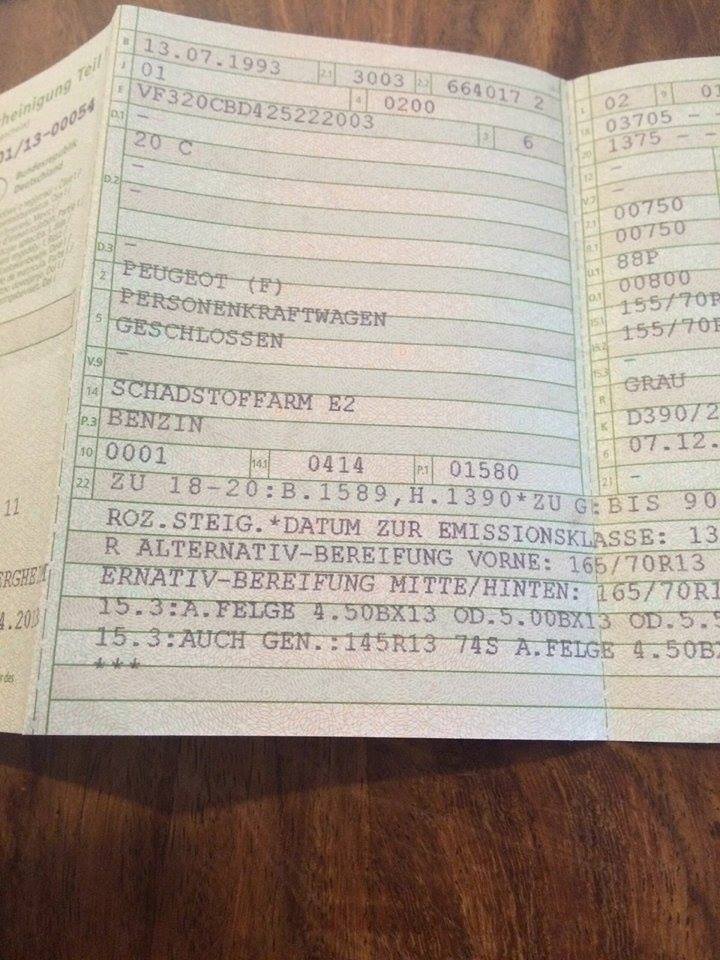 heinigung Teil
01/13-00054
Bundesrepublik
Deutschland
11
ERGHEIM
4.2013
B 13.07.1993 2.1 3003 2.2 664017 2
J 01 4 0200
E VF320CBD425222003 3 6
D.1 -
20 C
D.2 -
-
D.3 -
2 PEUGEOT (F)
5 PERSONENKRAFTWAGEN
GESCHLOSSEN
V.9 -
14 SCHADSTOFFARM E2
P.3 BENZIN
10 0001 14.1 0414 P.1 01580
22 ZU 18-20:B.1589,H.1390*ZU G:BIS 90
ROZ.STEIG.*DATUM ZUR EMISSIONSKLASSE: 13
R ALTERNATIV-BEREIFUNG VORNE: 165/70R13
ERNATIV-BEREIFUNG MITTE/HINTEN: 165/70R1
15.3:A.FELGE 4.50BX13 OD.5.00BX13 OD.5.5
15.3:AUCH GEN.:145R13 74S A.FELGE 4.50B
***
L 02 9 01
18 03705 -
20 1375 - -
12 -
V.7 -
7.1 00750
8.1 00750
U.1 88P
O.1 00800
15.1 155/70R
15.2 155/70R
15.3 -
R GRAU
K D390/2
6 07.12.
21 -